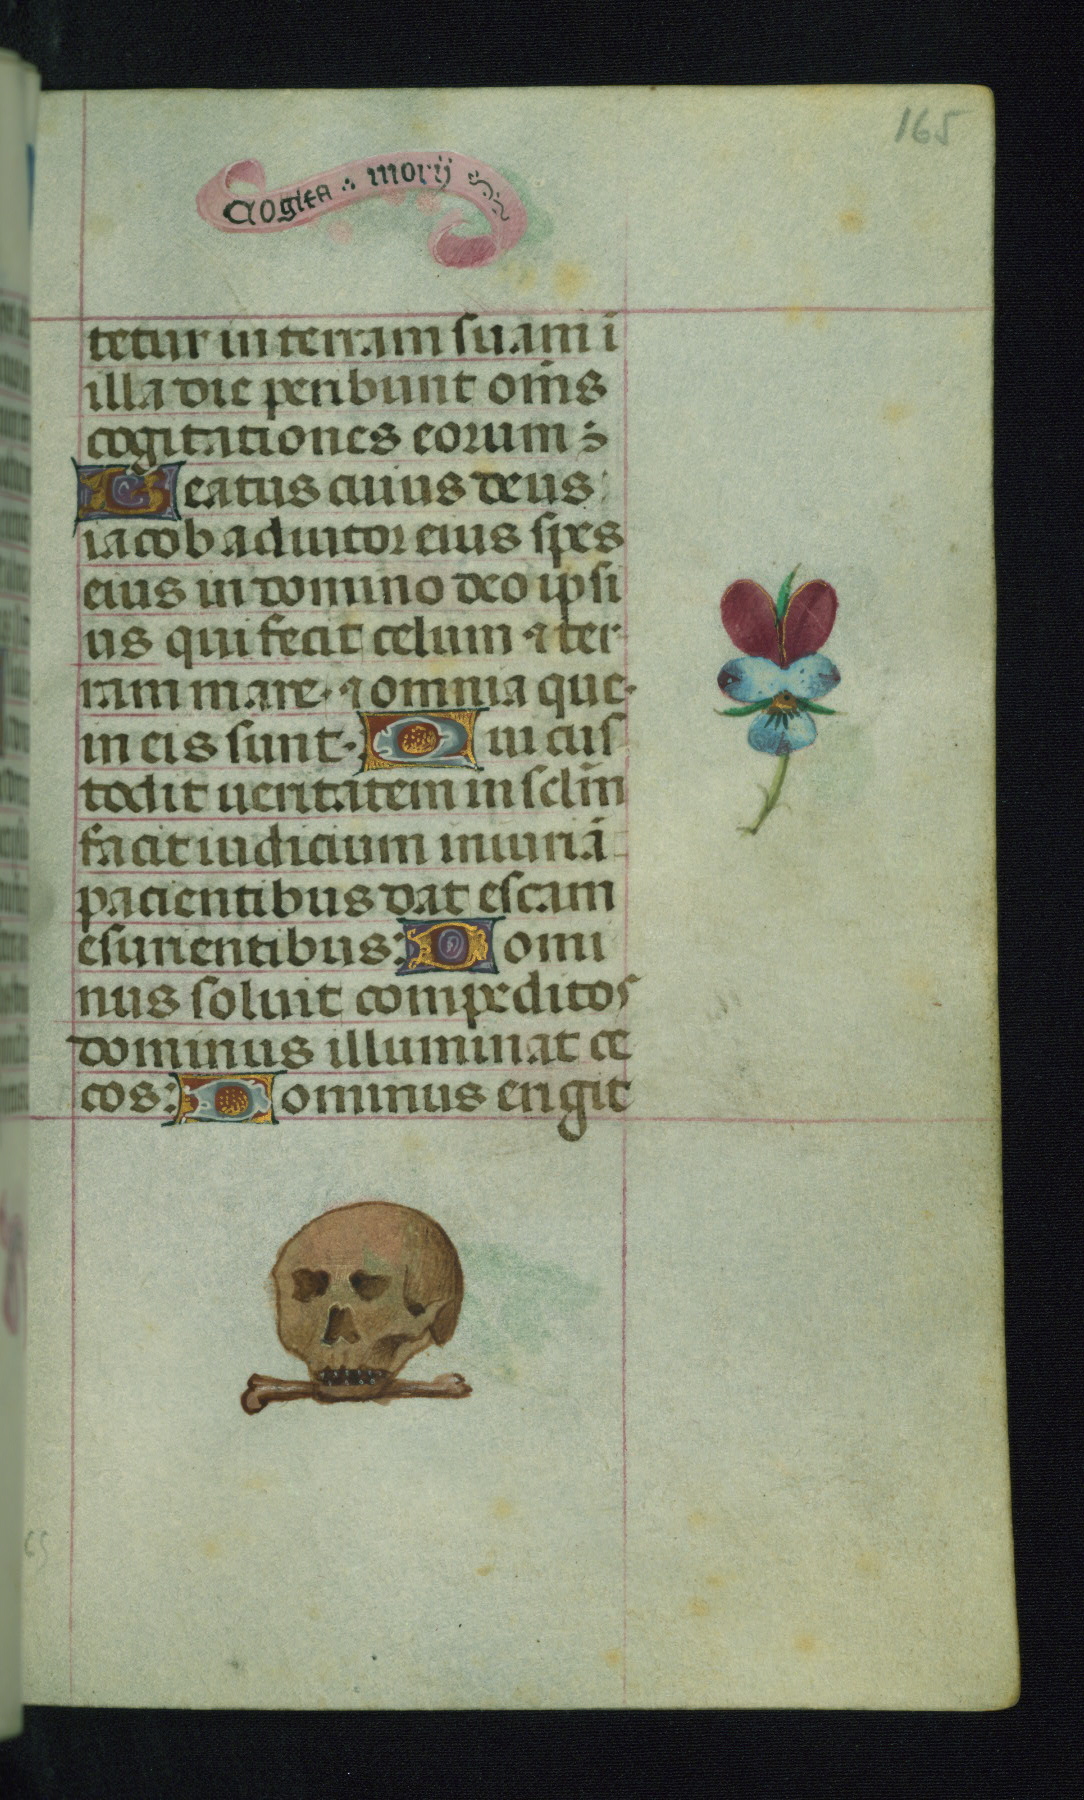 165
Cogita mori
tetur in terram suam i
illa die peribunt om̄s
cogitationes eorum
Beatus cuius deus
iacob adiutor eius spes
eius in domino deo ipsi
us qui fecit celum ⁊ ter
ram mare ⁊ omnia que
in eis sunt. Qui cus
todit ueritatem in sclm̄
facit iudicium iniuriā
pacientibus dat escam
esurientibus: Domi
nus soluit compeditos
dominus illuminat ce
cos: Dominus erigit